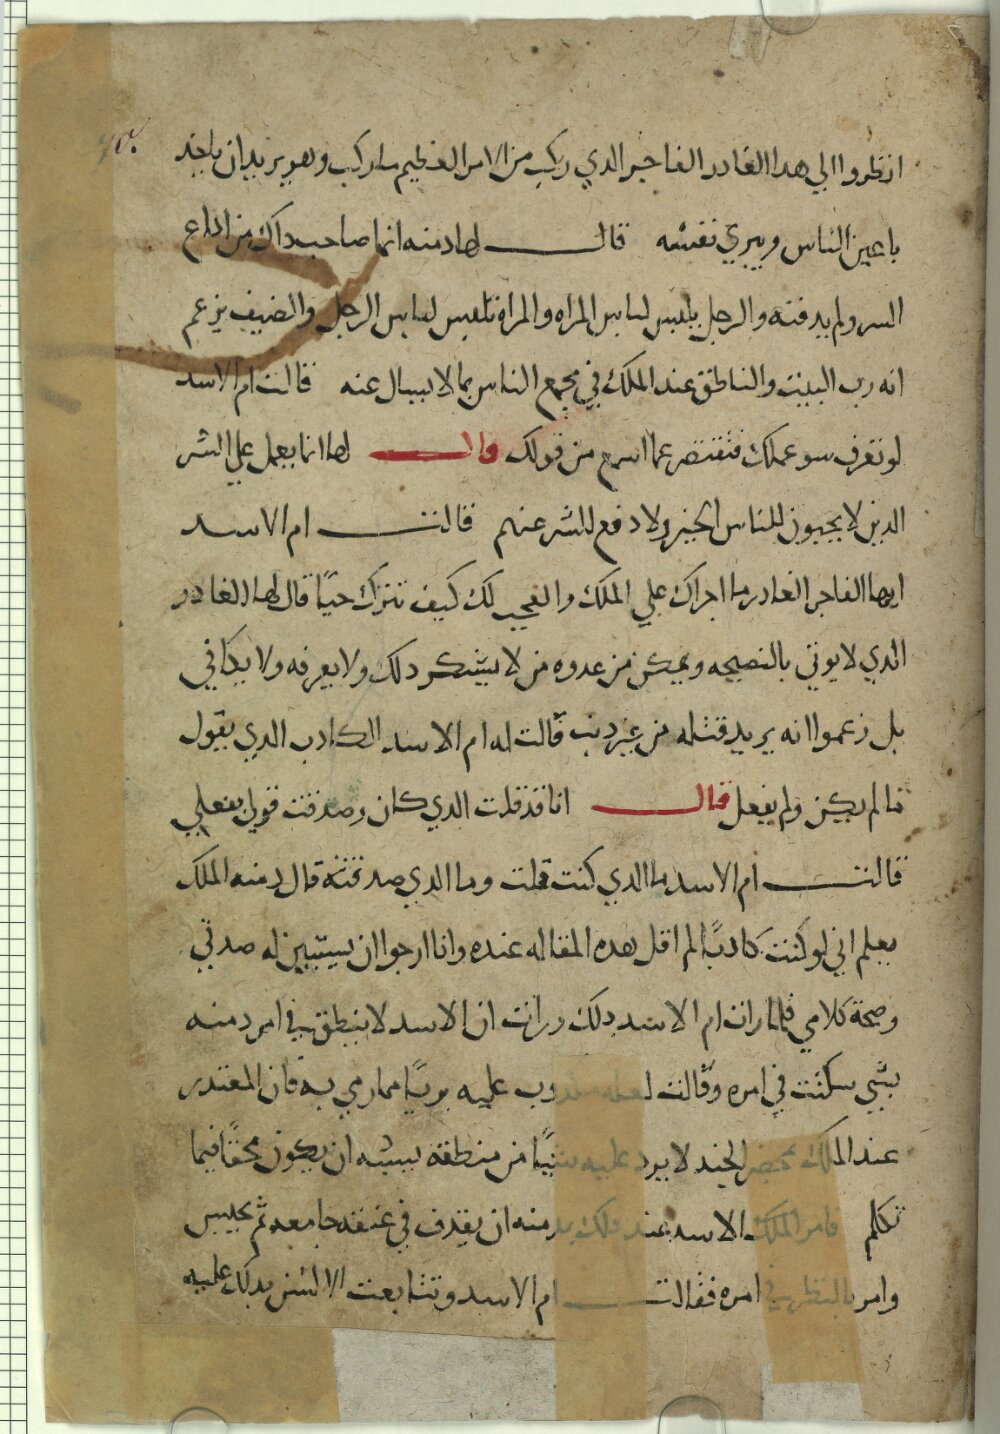 انظروا الي هدا الغادر الفاجر الدي ركب من الامر العظيم ماركب وهو يريد ان ياخد
باعين الناس ويبري نفسه قال لها دمنه انما صاحب داك من اداع
السر ولم يدفنه والرجل يلبس لباس المراه والمراه تلبس لباس الرجل والضيف يزعم
انه رب البيت والناطق عند الملك في مجمع الناس بما لا يسال عنه قالت ام الاسد
لو تعرف سو عملك فتقتصر عما اسرع من قولك قال لها انما يعمل علي الشر
الدين لا يحبون للناس الخير ولا دفع للشر عنهم قالت ام الاسد
ايها الفاجر الغادر ما اجراك علي الملك والعجب لك كيف تترك حيًا قال لها الغادر
الدي لا يوتي بالنصيحه ويمكن من عدوه من لا يشكر دلك ولا يعرفه ولا يكافي
بل زعموا انه يريد قتله من غير دنب قالت له ام الاسد الكادب الدي يقول
ما لم يكن ولم يفعل قال انا قد قلت الدي كان وصدقت قولي بفعلي
قالت ام الاسد ما الدي كنت قلت وما الدي صدقته قال دمنه الملك
يعلم اني لو كنت كادبًا لم اقل هده المقاله عنده وانا ارجوا ان يستبين له صدقي
وصحة كلامي فلما رات ام الاسد دلك ورات ان الاسد لا ينطق في امر دمنه
بشي سكتت في امره وقالت لعله مكدوب عليه بريًا مما رمي به فان المعتدر
عند الملك بمحضر الجند لا يرد عليه شيًا من منطقه يشبه ان يكون محقًا فيما
تكلم فامر الملك الاسد عند دلك بدمنه ان يقدف في عنقه جامعه ثم يحبس
وامر بالنظر في امره فقالت ام الاسد وتتابعت الالسن بدلك عليه